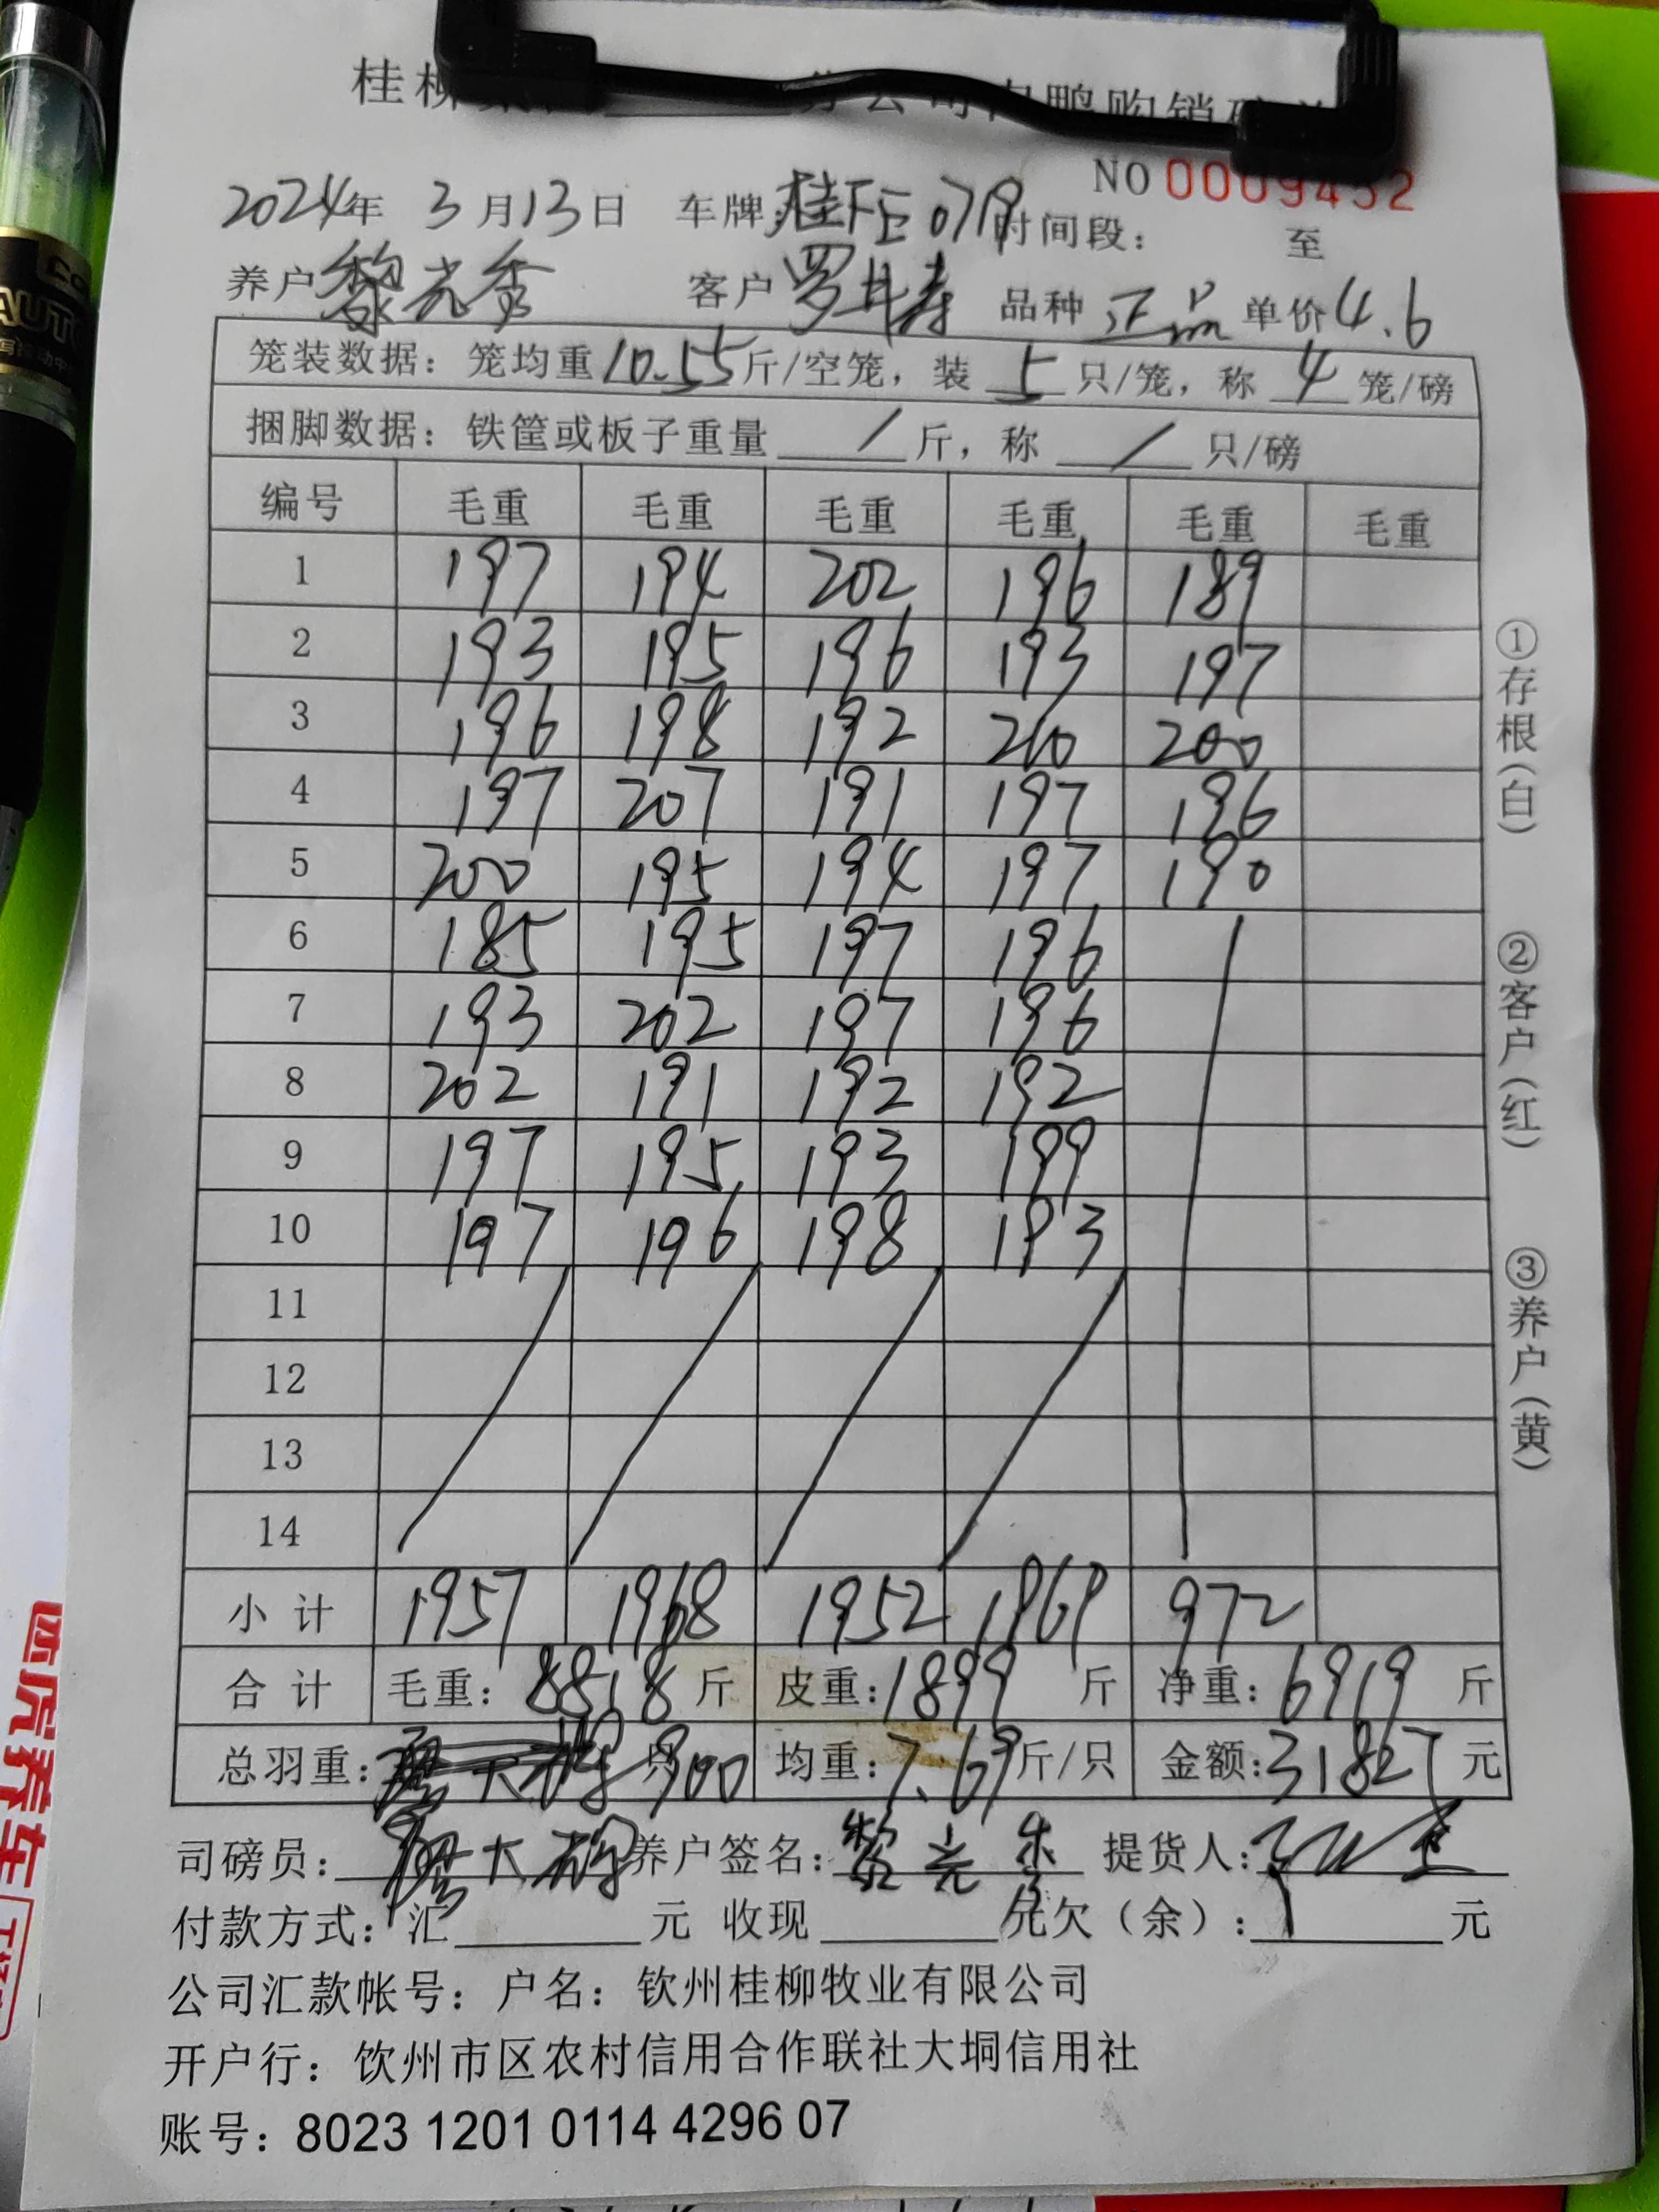 桂柳 分公司 鸭购销
NO 0009452
2024年 3月13日 车牌: 时间段: 至
养户 黎光秀 客户 罗 品种 正品 单价4.6
笼装数据: 笼均重10.55斤/空笼, 装 5 只/笼, 称 4 笼/磅
捆脚数据: 铁筐或板子重量 / 斤, 称 / 只/磅
编号 毛重 毛重 毛重 毛重 毛重 毛重
1 197 194 202 196 189
2 193 195 196 193 197
3 196 198 192 210 200
4 197 207 191 197 196
5 200 195 194 197 190
6 185 195 197 196
7 193 202 197 196
8 202 191 192 192
9 197 195 193 199
10 197 196 198 193
11
12
13
14
小 计 1957 1968 1952 1969 972
合 计 毛重: 8818 斤 皮重: 1899 斤 净重: 6919 斤
总羽重: 只 900 均重: 7.69 斤/只 金额: 31827 元
司磅员: 养户签名: 黎光 提货人:
付款方式: 汇 元 收现 元欠(余): 元
公司汇款帐号: 户名: 钦州桂柳牧业有限公司
开户行: 饮州市区农村信用合作联社大垌信用社
账号: 8023 1201 0114 4296 07
①存根(白)
②客户(红)
③养户(黄)